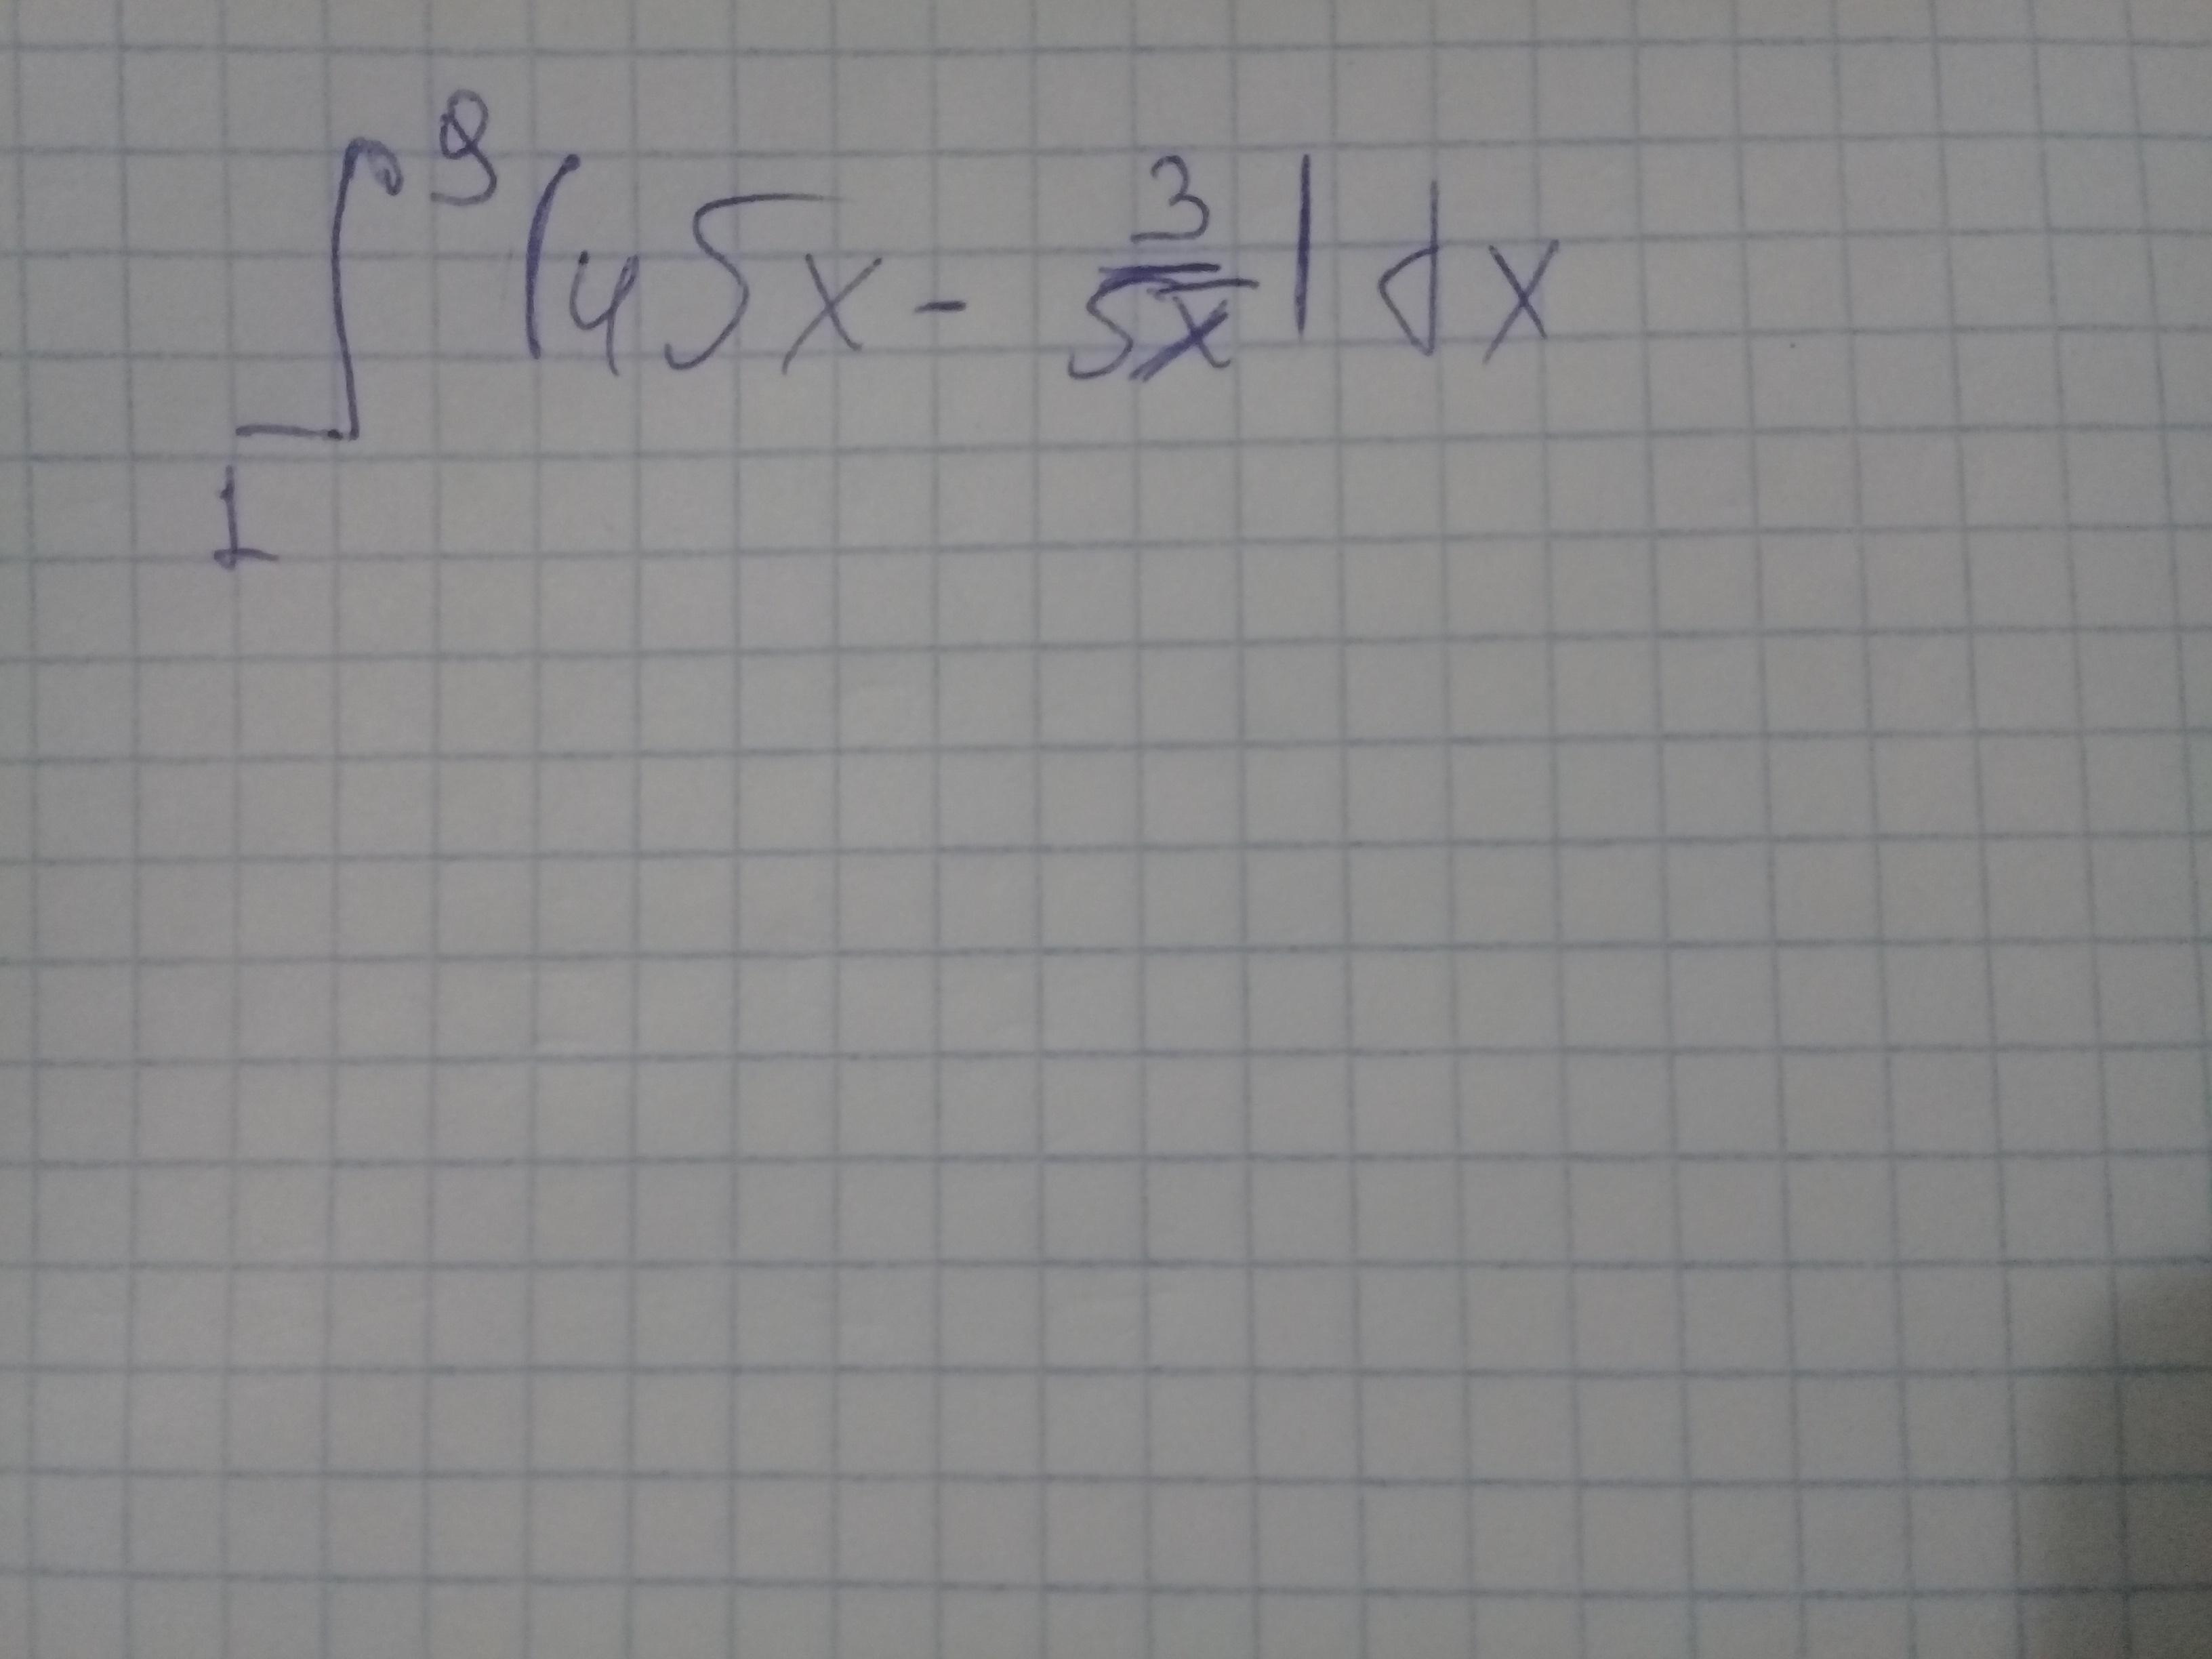 ∫₁⁹ (4√x - 3/√x) dx